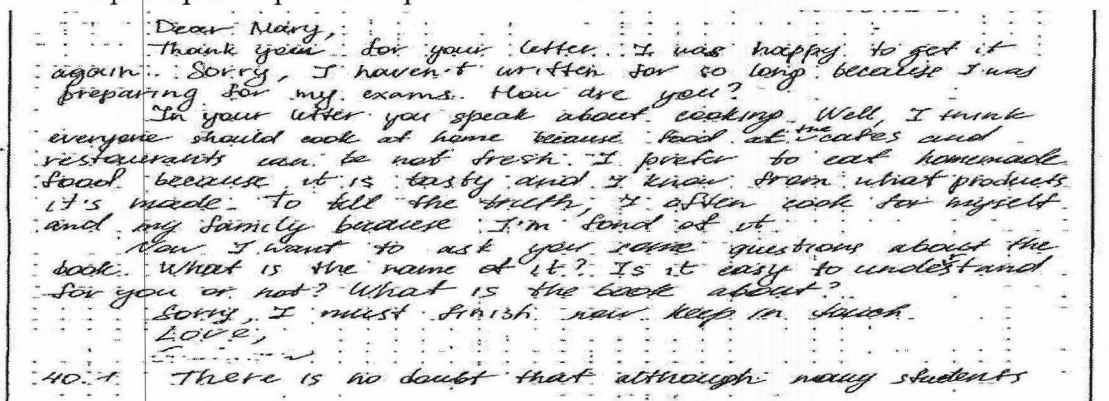 Dear Mary,
Thank you for your letter. I was happy to get it
again. Sorry, I haven't written for so long because I was
preparing for my exams. How are you?
In your letter you speak about cooking. Well, I think
everyone should cook at home because food at the cafes and
restaurants can be not fresh. I prefer to eat homemade
food because it is tasty and I know from what products
it's made. To tell the truth, I often cook for myself
and my family because I'm fond of it.
Now I want to ask you some questions about the
book. What is the name of it? Is it easy to understand
for you or not? What is the book about?
Sorry, I must finish now keep in touch.
Love,
40.1 There is no doubt that although many students